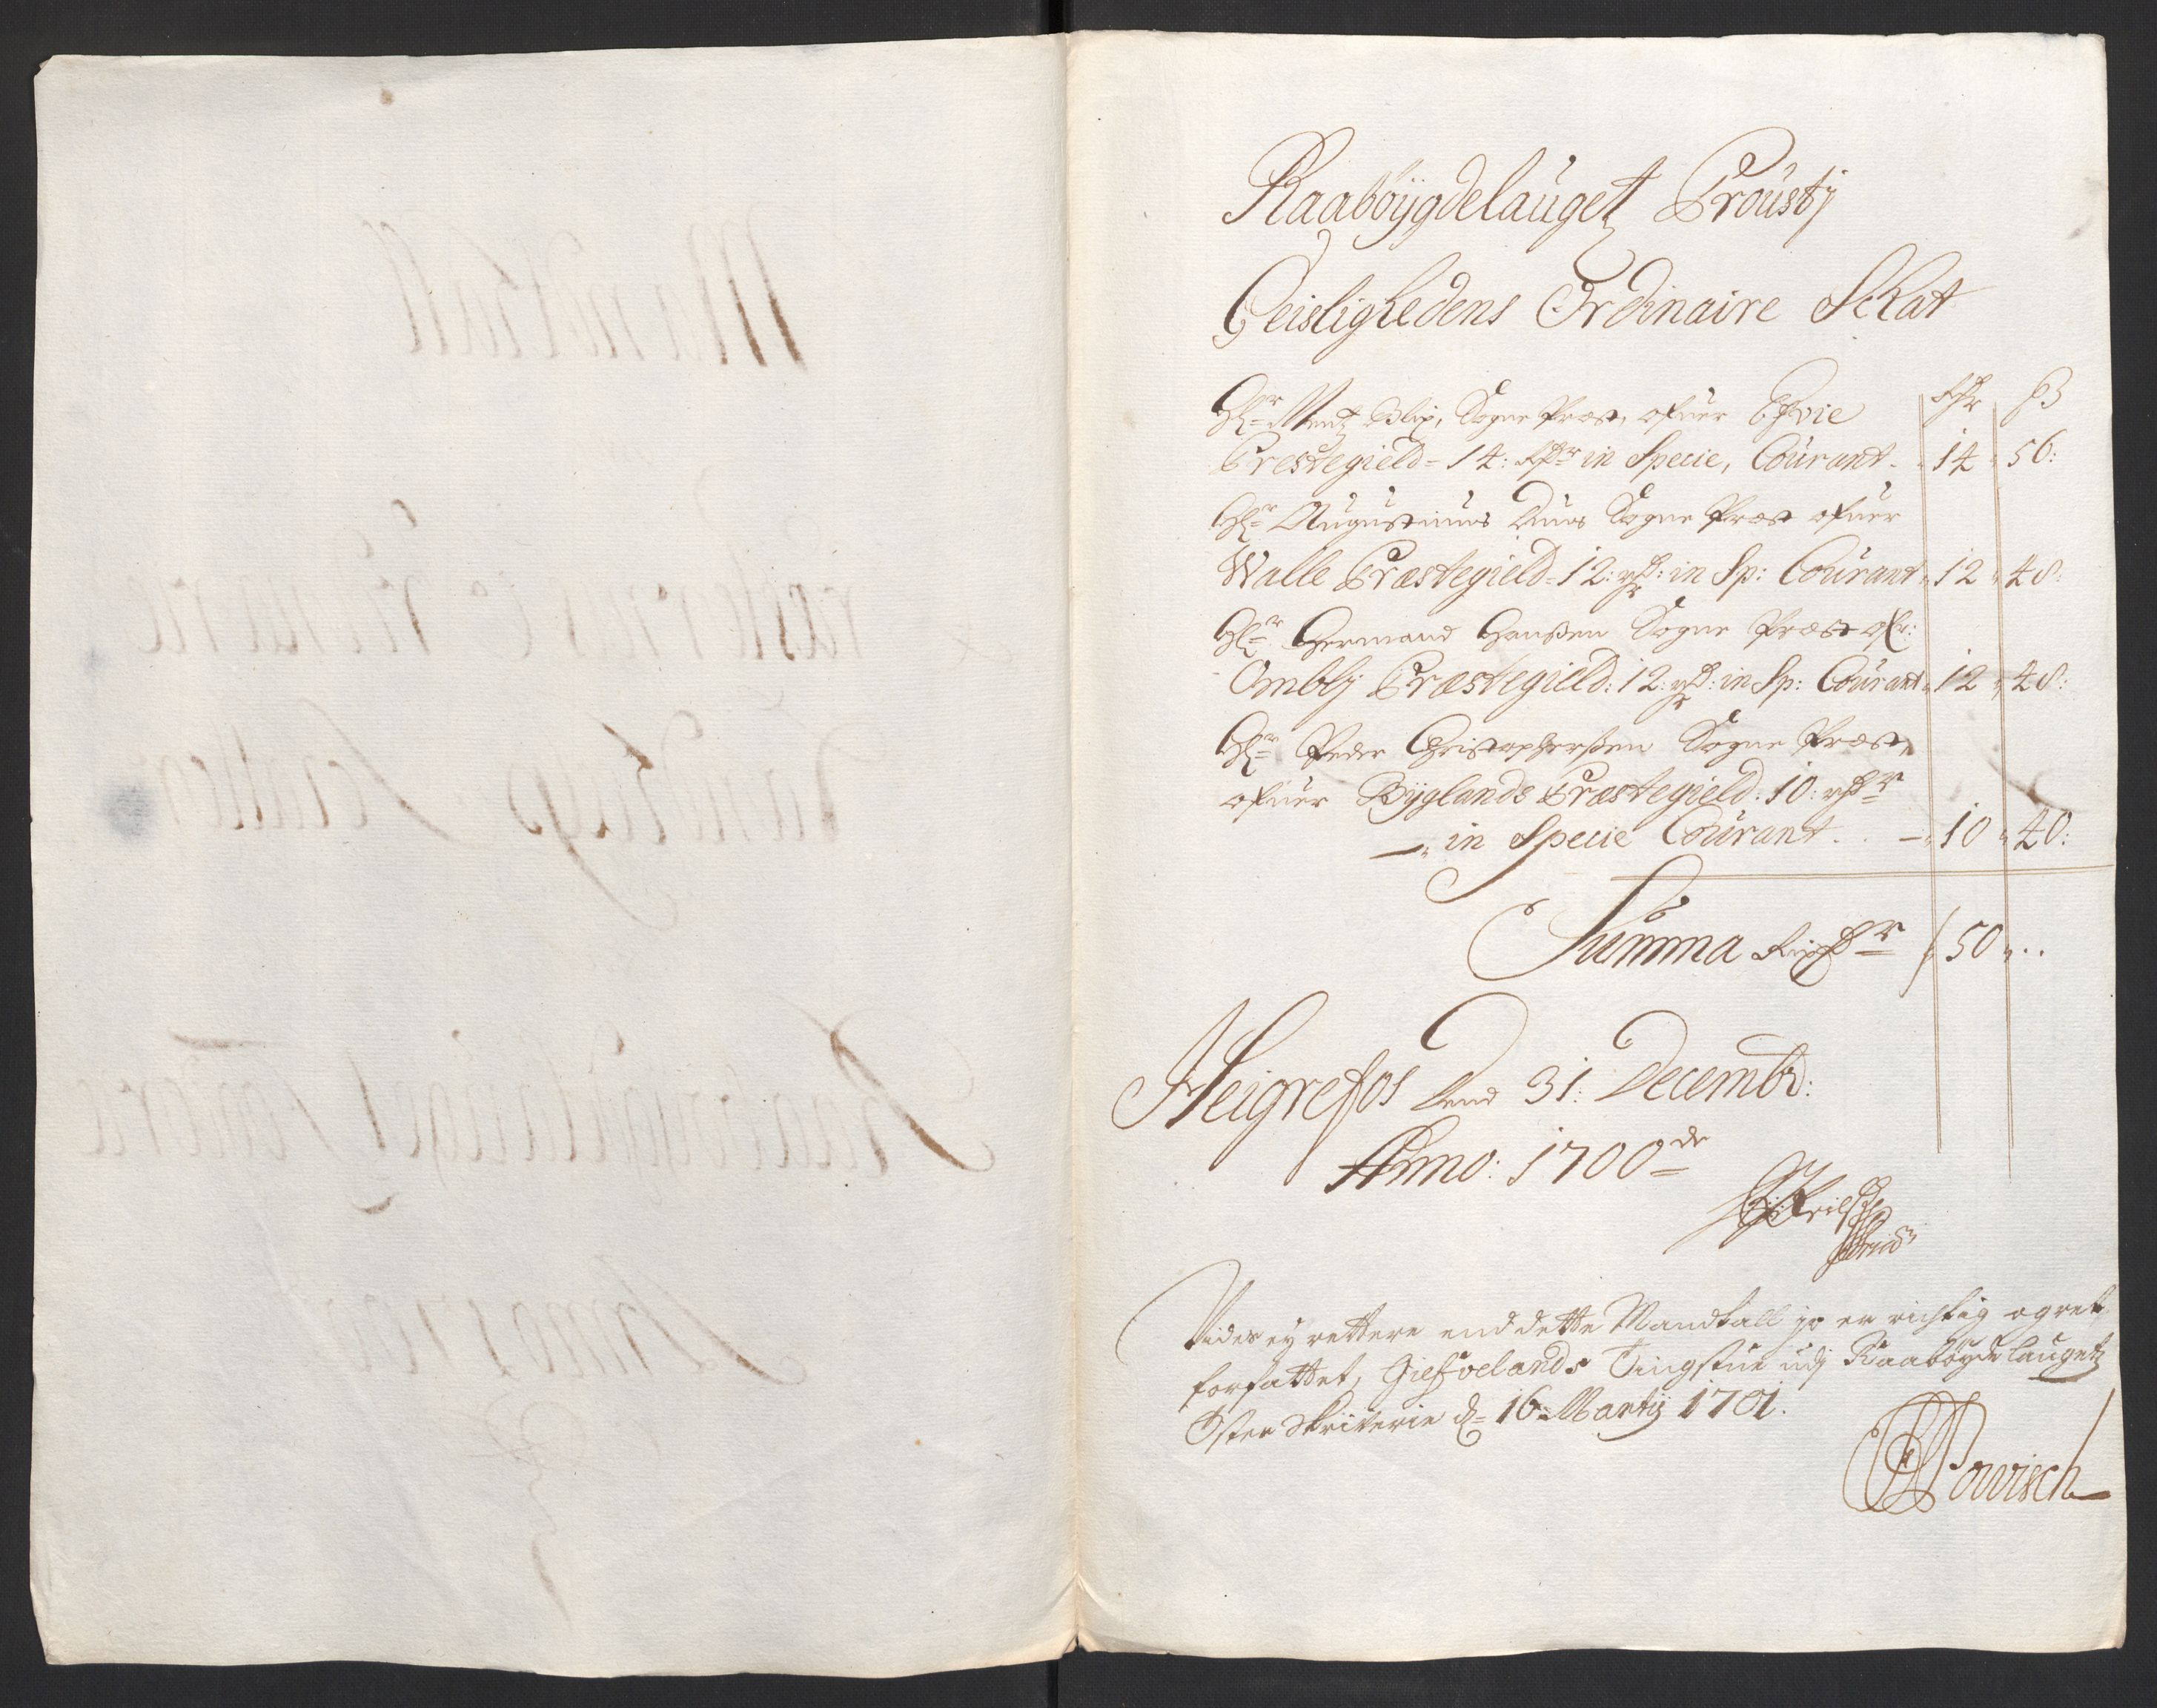 Raabøygdelauget Proustj
Geislighedens Ordinaire Skat
Rdr ß
Hr Mentz Blix, Sogne Præst, ofuer Efvie
Prestegield = 14: Rdr in Specie, Courant 14 56:
Hr Augustinus Duus Sogne Præst ofuer
Walle Præstegield = 12: rd: in Sp: Courant 12 48:
Hr Hermand Hanßen Sogne Præst ofr:
Ombly Præstegield: 12: rd: in Sp: Courant 12 48:
Hr Peder Christopherßen Sogne Præst
ofuer Byglands Præstegield: 10: rdr
in Specie Courant . . 10 40:
Summa Rixdr 50 . .
Heigrefos dend 31: Decembr:
Anno: 1700de
Vides ey rettere end dette Mandtall jo er richtig og ret
forfattet, Giefvelands Tingstue udj Raabøydelaugetz
Øster Skriverie d= 16 Martij 1701.
Powisch
Mandtall
Raabøygdelauget
Anno 1700